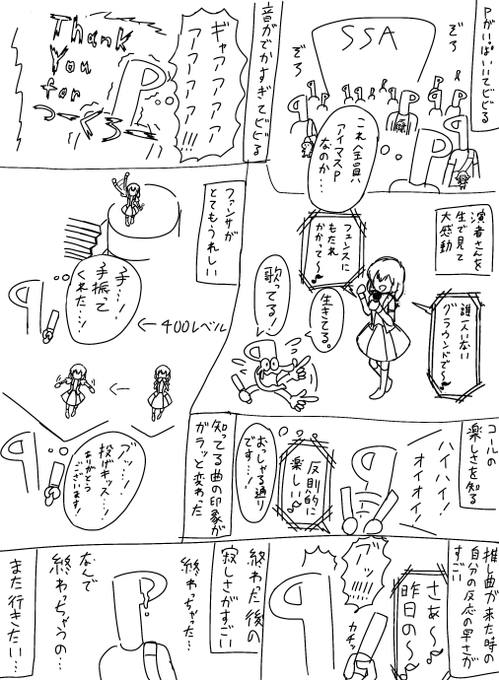 Pがいっぱいいてビビる
SSA
ぞろ
ぞろ
これ全員
アイマスP
なのか…
音がでかすぎてビビる
ギャアアアアア
アアアアア!!!
Thank
You
for
つーくるー
演者さんを
生で見て
大感動
誰人いない
グラウンドで〜♪
フェンスに
もたれ
かかって〜♪
生きてる。
歌ってる!
ファンサが
とてもうれしい
手…!
手振って
くれた…!
←400レベル
←
アッ…!
投げキッス…!
ありがとう
ございます!
コールの
楽しさを知る
ハイハイ!
オイオイ!
反則的に
楽しい♪
おっしゃる通り
です…!
知ってる曲の印象が
ガラッと変わった
推し曲が来た時の
自分の反応の早さが
すごい
さぁ〜♪
昨日の〜♪
アッ!!!!
カチッ
終わった後の
寂しさがすごい
終わっちゃった…
なんで
終わっちゃうの…
また行きたい…